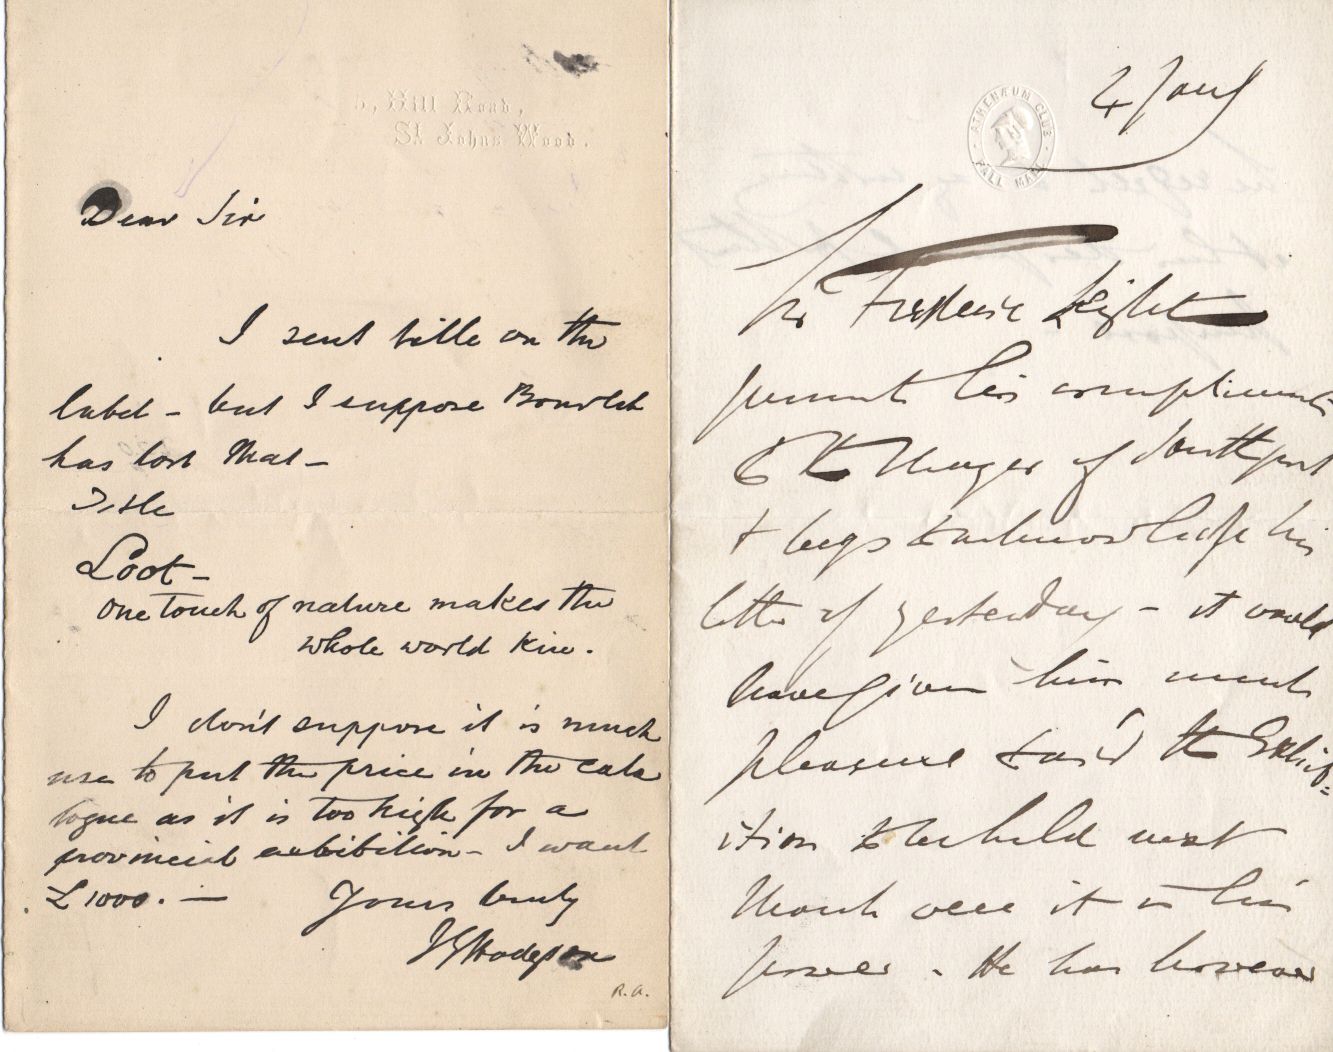 5, Hill Road,
St Johns Wood.
Dear Sir
I sent title on the
label - but I suppose Bourlet
has lost that -
Title
Loot -
One touch of nature makes the
whole world kin.
I don't suppose it is much
use to put the price in the cata
logue as it is too high for a
provincial exhibition - I want
£1000. —
Yours truly
J E Hodgson
R.A.
ATHENÆUM CLUB
PALL MALL
2 Jany
Sir Frederic Leighton
presents his compliments
to the Mayor of Southport
& begs to acknowledge his
letter of yesterday - it would
have given him much
pleasure to aid the Exhib=
ition to be held next
March were it in his
power. He has however